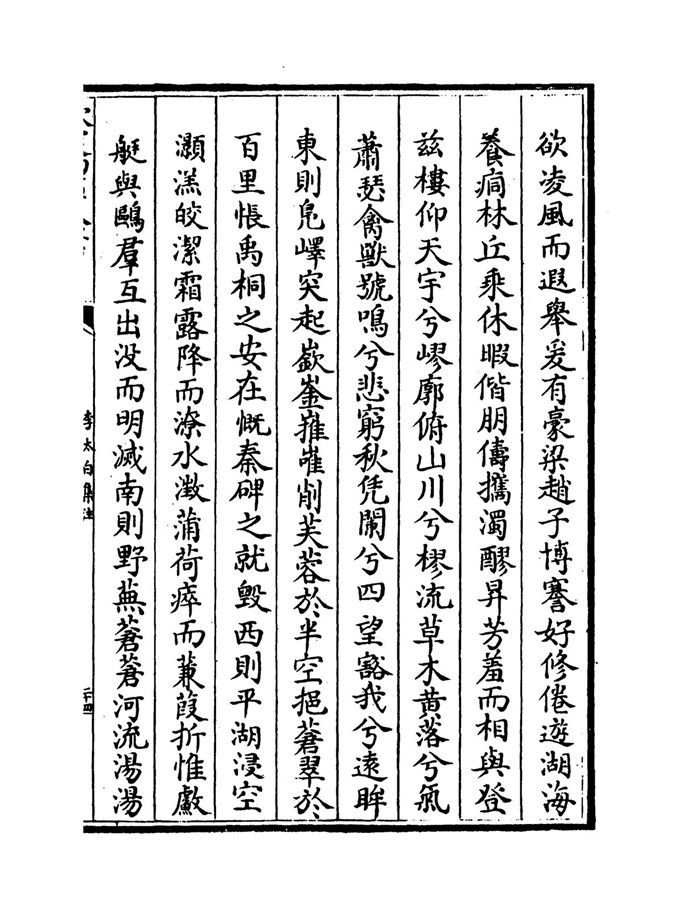 欲凌風而遐舉爰有豪梁趙子博謇好修倦遊湖海
養痾林丘乘休暇偕朋儔攜濁醪昇芳羞而相與登
兹樓仰天宇兮嵺廓俯山川兮樛流草木黄落兮氣
蕭瑟禽獸號鳴兮悲窮秋凭闌兮四望豁我兮遠眸
東則鳧嶧突起嶔崟嶊嶉削芙蓉於半空挹蒼翠於
百里悵禹桐之安在慨秦碑之就毁西則平湖浸空
灝溔皎潔霜露降而潦水澂蒲荷瘁而蒹葭折惟㱆
艇與鷗羣互出没而明滅南則野蕪蒼蒼河流湯湯
李太白集注
二十四